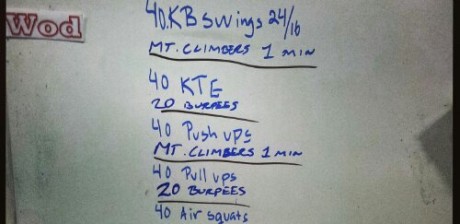 Wod
40 KB swings 24/16
MT. CLIMBERS 1 MIN
40 KTE
20 BURPEES
40 Push ups
MT. CLIMBERS 1 MIN
40 Pull ups
20 BURPEES
40 Air squats